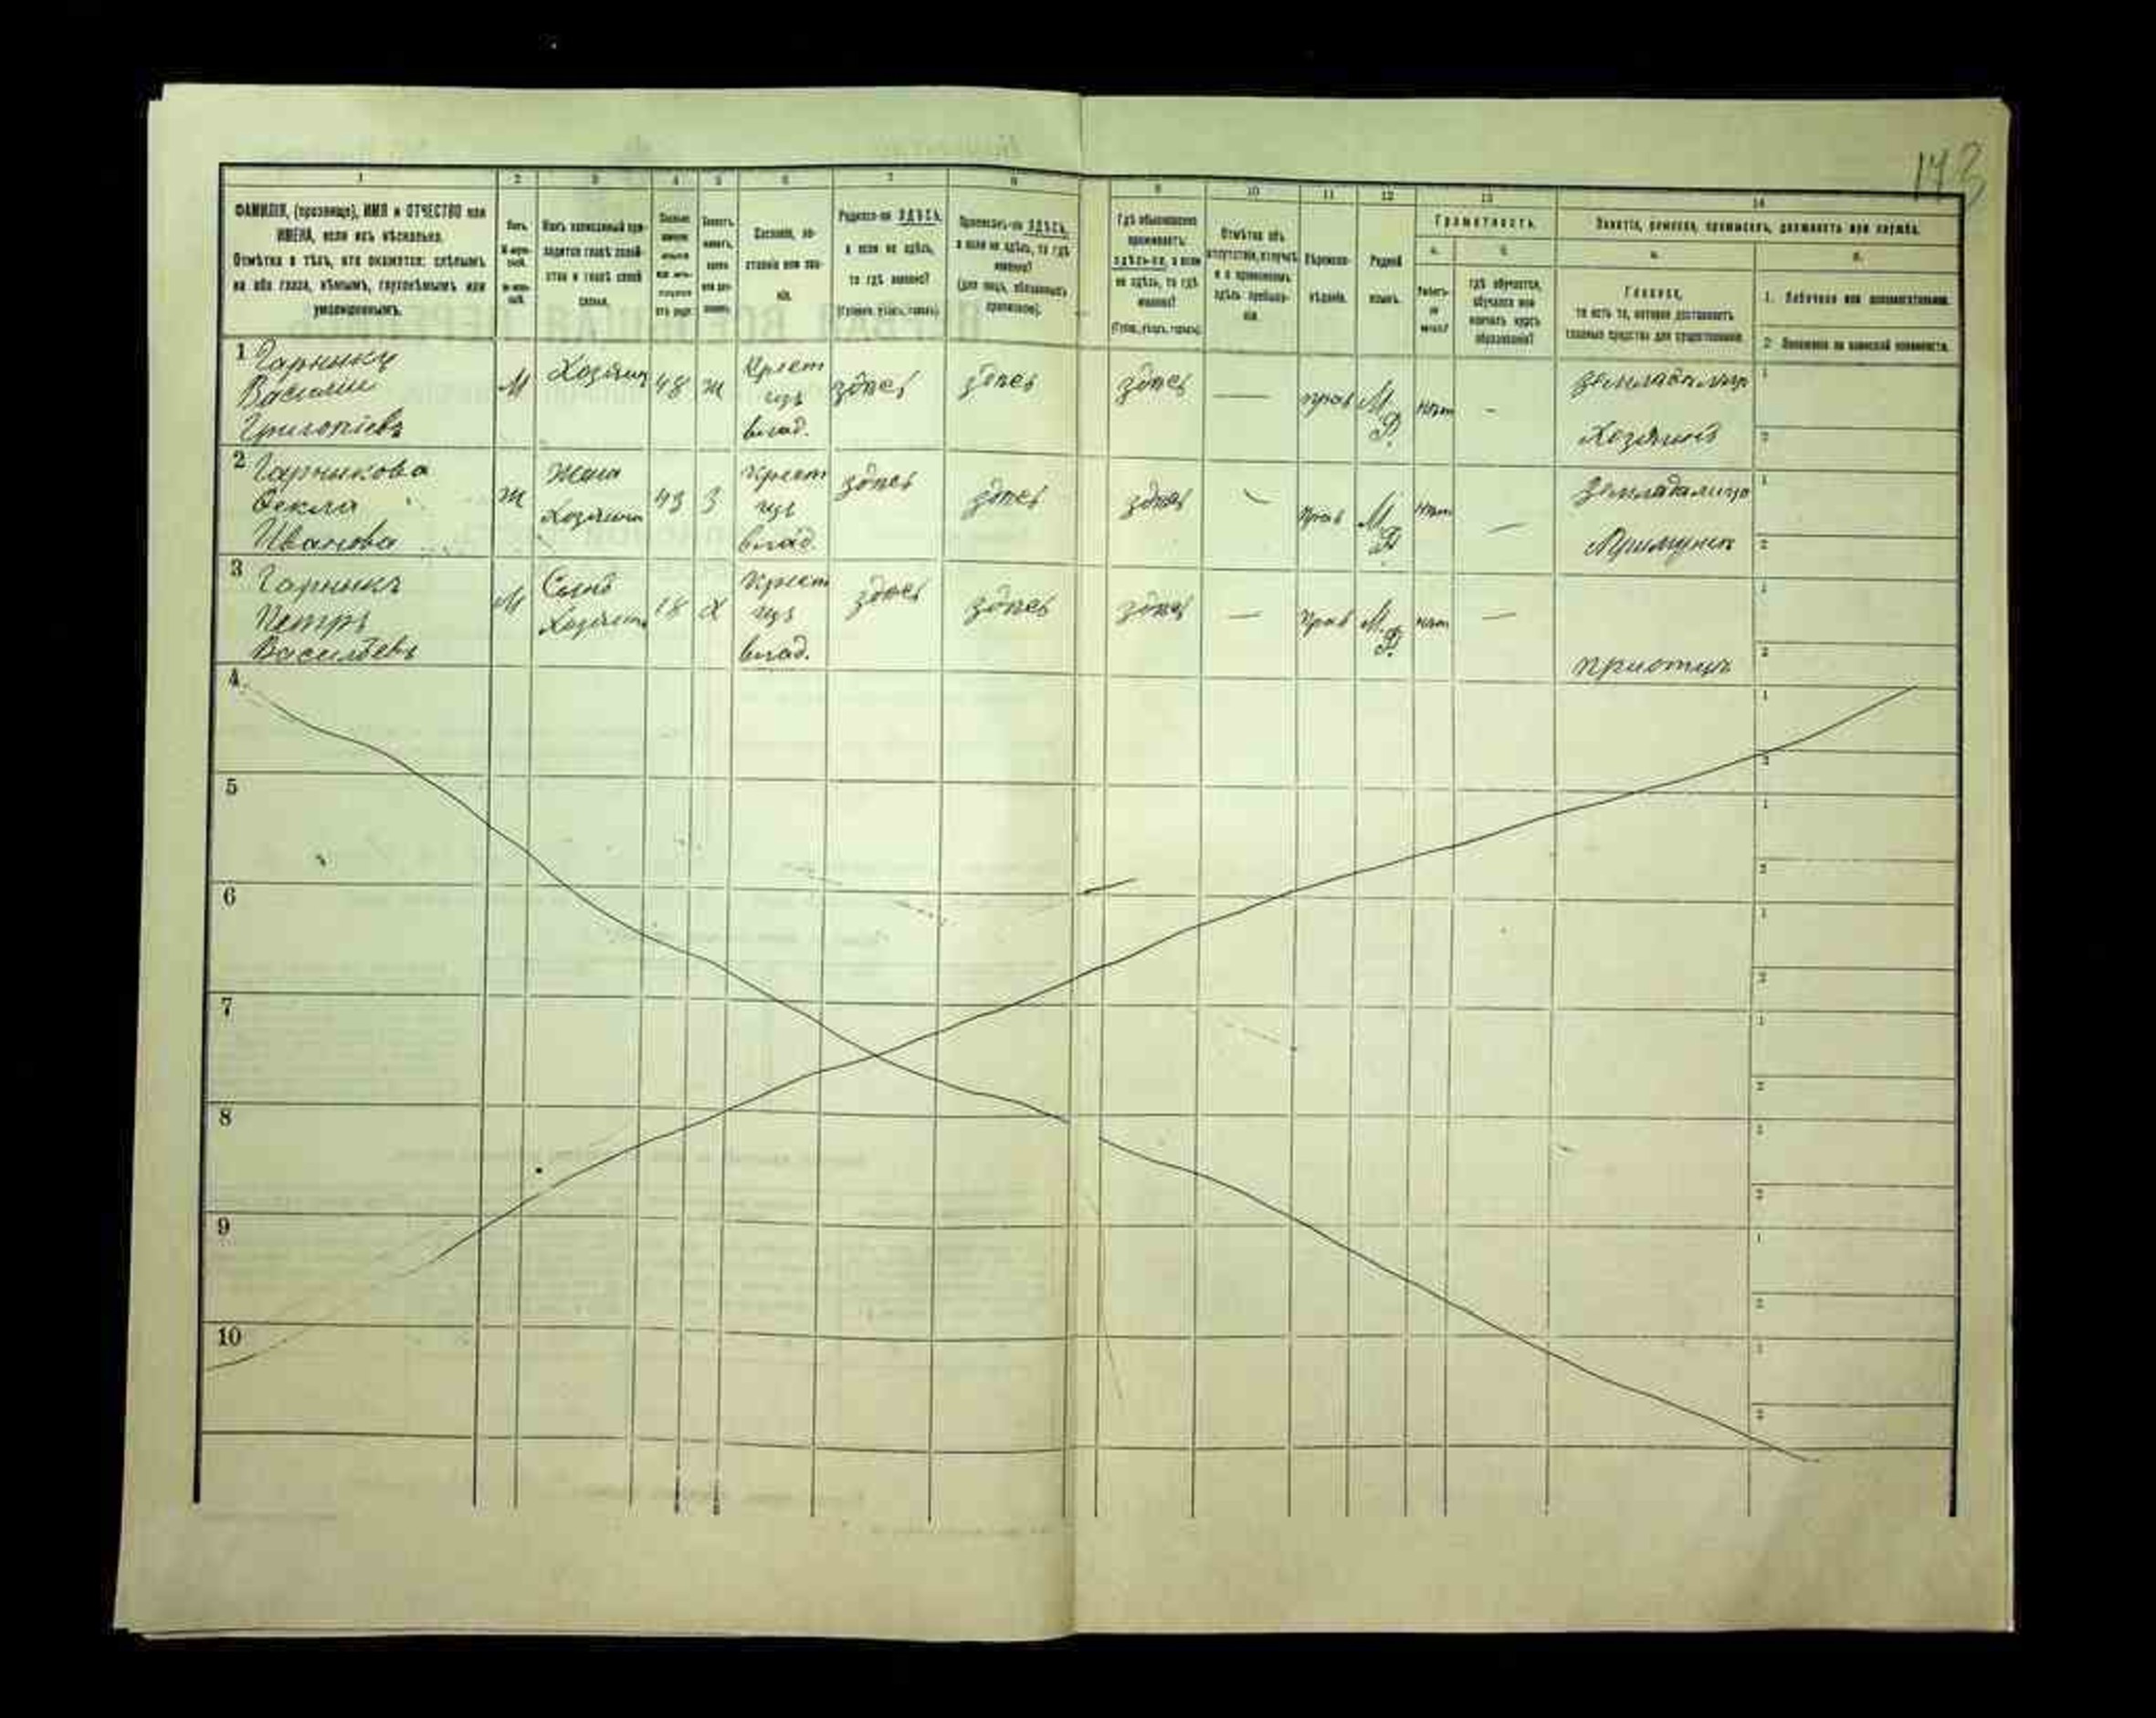 143
1 2 3 4 5 6 7 8 9 10 11 12 13 14
ФАМИЛІЯ, (прозвище), ИМЯ и ОТЧЕСТВО или
ИМЕНА, если ихъ нѣсколько.
Отмѣтка о тѣхъ, кто окажется: слѣпымъ
на оба глаза, нѣмымъ, глухонѣмымъ или
умалишеннымъ.
Полъ.
Какъ записанный при-
ходится главѣ хозяй-
ства и главѣ своей
семьи.
Сословіе, со-
стояніе или зва-
ніе.
Родился-ли ЗДѢСЬ,
а если не здѣсь,
то гдѣ именно?
(Губернія, уѣздъ, городъ).
Приписанъ-ли ЗДѢСЬ,
а если не здѣсь, то гдѣ
именно?
(для лицъ, обязанныхъ
припискою).
Гдѣ обыкновенно
проживаетъ:
здѣсь-ли, а если
не здѣсь, то гдѣ
именно?
(Губ., уѣздъ, городъ).
Отмѣтка объ
отсутствіи, отлучкѣ
и о временномъ
здѣсь пребыва-
ніи.
Вѣроиспо-
вѣданіе.
Родной
языкъ.
Грамотность.
а. б.
Умѣетъ-
ли
читать?
гдѣ обучается,
обучался или
кончилъ курсъ
образованія?
Занятіе, ремесло, промыселъ, должность или служба.
а. б.
Главное,
то есть то, которое доставляетъ
главныя средства для существованія.
1. Побочное или вспомогательное.
2. Положеніе по воинской повинности.
1 Гарникъ
Василий
Григоріевъ
М
Хозяинъ
48
ж
Крест
изъ
влад.
здѣсь
здѣсь
здѣсь
—
прав
М.
Р.
нѣт
-
Хозяинъ
1
2
2 Гарникова
Фекла
Иванова
ж
Жена
Хозяина
43
З
Крест
изъ
влад.
здѣсь
здѣсь
здѣсь
—
прав
М.
Р.
нѣт
—
1
2
3 Гарникъ
Петръ
Васильевъ
М
Сынъ
Хозяина
18
Х
Крест
изъ
влад.
здѣсь
здѣсь
здѣсь
—
прав
М.
Р.
нѣт
—
1
2
4
1
2
5
1
2
6
1
2
7
1
2
8
1
2
9
1
2
10
1
2